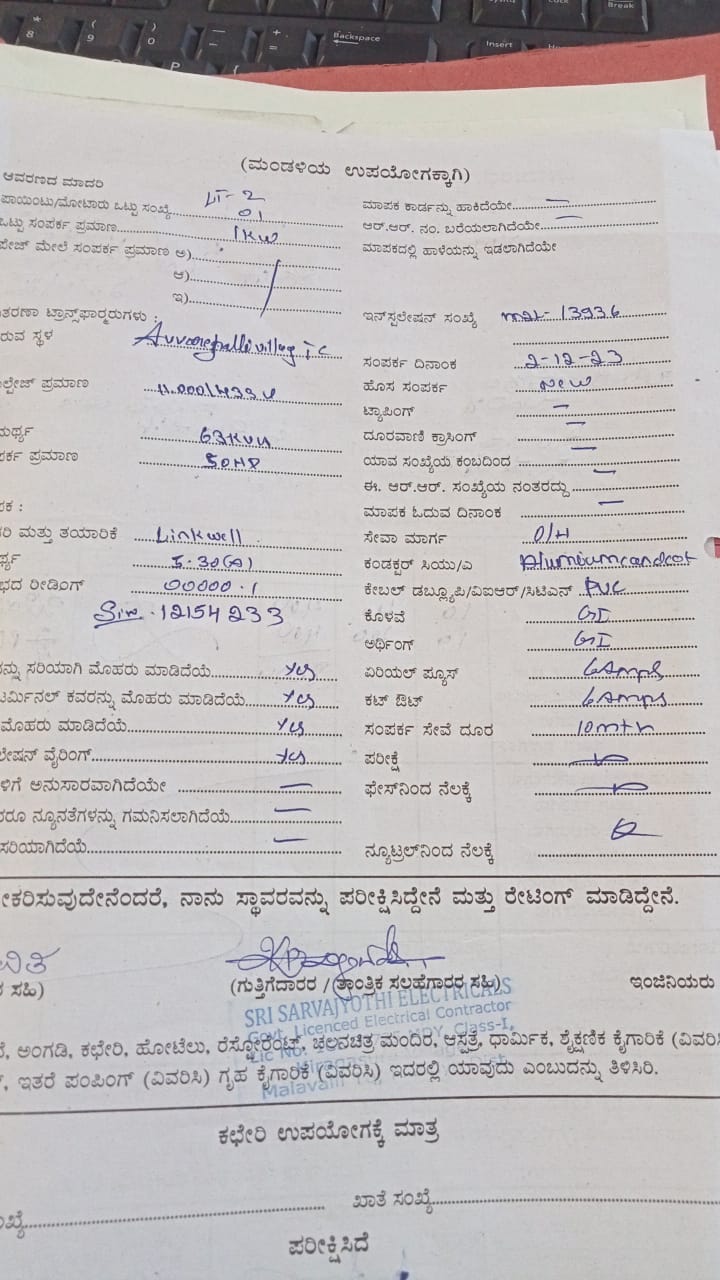 *
8
(
9
)
0
_
-
+
=
Backspace
Insert
Break
P
{
(ಮಂಡಳಿಯ ಉಪಯೋಗಕ್ಕಾಗಿ)
ಆವರಣದ ಮಾದರಿ LT-2
ಪಾಯಿಂಟು/ಮೋಟಾರು ಒಟ್ಟು ಸಂಖ್ಯೆ 01
ಒಟ್ಟು ಸಂಪರ್ಕ ಪ್ರಮಾಣ 1KW
ಪೇಜ್ ಮೇಲೆ ಸಂಪರ್ಕ ಪ್ರಮಾಣ ಅ)
ಆ)
ಇ)
ತರಣಾ ಟ್ರಾನ್ಸ್‌ಫಾರ್‍ಮರುಗಳು :
ರುವ ಸ್ಥಳ
ಲ್ಟೇಜ್ ಪ್ರಮಾಣ
ಮರ್ಥ್ಯ 63KVA
ಪರ್ಕ ಪ್ರಮಾಣ 50HP
ಪಕ :
ರಿ ಮತ್ತು ತಯಾರಿಕೆ Linkwell
ರ್ಥ್ಯ 5-30(A)
ಭದ ರೀಡಿಂಗ್ 00000.1
12154233
ನ್ನು ಸರಿಯಾಗಿ ಮೊಹರು ಮಾಡಿದೆಯೆ Yes
ಟರ್ಮಿನಲ್ ಕವರನ್ನು ಮೊಹರು ಮಾಡಿದೆಯೆ Yes
ಮೊಹರು ಮಾಡಿದೆಯೆ Yes
ಲೇಷನ್ ವೈರಿಂಗ್ Yes
ಳಿಗೆ ಅನುಸಾರವಾಗಿದೆಯೇ —
ರೂ ನ್ಯೂನತೆಗಳನ್ನು ಗಮನಿಸಲಾಗಿದೆಯೆ —
ಸರಿಯಾಗಿದೆಯೆ —
ಮಾಪಕ ಕಾರ್ಡನ್ನು ಹಾಕಿದೆಯೇ —
ಆರ್.ಆರ್. ನಂ. ಬರೆಯಲಾಗಿದೆಯೇ —
ಮಾಪಕದಲ್ಲಿ ಹಾಳೆಯನ್ನು ಇಡಲಾಗಿದೆಯೇ
ಇನ್‌ಸ್ಟಲೇಷನ್ ಸಂಖ್ಯೆ 13936
ಸಂಪರ್ಕ ದಿನಾಂಕ 2-12-23
ಹೊಸ ಸಂಪರ್ಕ New
ಟ್ಯಾಪಿಂಗ್ —
ದೂರವಾಣಿ ಕ್ರಾಸಿಂಗ್ —
ಯಾವ ಸಂಖ್ಯೆಯ ಕಂಬದಿಂದ —
ಈ. ಆರ್.ಆರ್. ಸಂಖ್ಯೆಯ ನಂತರದ್ದು —
ಮಾಪಕ ಓದುವ ದಿನಾಂಕ —
ಸೇವಾ ಮಾರ್ಗ O/H
ಕಂಡಕ್ಟರ್ ಸಿಯು/ಎ
ಕೇಬಲ್ ಡಬ್ಲ್ಯೂಪಿ/ವಿಐಆರ್/ಸಿಟಿಎಸ್ PVC
ಕೊಳವೆ GI
ಅರ್ಥಿಂಗ್ GI
ಏರಿಯಲ್ ಪ್ಯೂಸ್ 6Amps
ಕಟ್ ಔಟ್ 6Amps
ಸಂಪರ್ಕ ಸೇವೆ ದೂರ 10mtr
ಪರೀಕ್ಷೆ
ಫೇಸ್‌ನಿಂದ ನೆಲಕ್ಕೆ
ನ್ಯೂಟ್ರಲ್‌ನಿಂದ ನೆಲಕ್ಕೆ
ೀಕರಿಸುವುದೇನೆಂದರೆ, ನಾನು ಸ್ಥಾವರವನ್ನು ಪರೀಕ್ಷಿಸಿದ್ದೇನೆ ಮತ್ತು ರೇಟಿಂಗ್ ಮಾಡಿದ್ದೇನೆ.
ಸಹಿ)
(ಗುತ್ತಿಗೆದಾರರ / ತಾಂತ್ರಿಕ ಸಲಹೆಗಾರರ ಸಹಿ)
ಇಂಜಿನಿಯರು
SRI SARVAJYOTHI ELECTRICALS
Govt. Licenced Electrical Contractor
Class-I,
Malavalli
, ಅಂಗಡಿ, ಕಛೇರಿ, ಹೋಟೆಲು, ರೆಸ್ಟೋರೆಂಟ್, ಚಲನಚಿತ್ರ ಮಂದಿರ, ಆಸ್ಪತ್ರೆ, ಧಾರ್ಮಿಕ, ಶೈಕ್ಷಣಿಕ ಕೈಗಾರಿಕೆ (ವಿವರಿಸಿ
, ಇತರೆ ಪಂಪಿಂಗ್ (ವಿವರಿಸಿ) ಗೃಹ ಕೈಗಾರಿಕೆ (ವಿವರಿಸಿ) ಇದರಲ್ಲಿ ಯಾವುದು ಎಂಬುದನ್ನು ತಿಳಿಸಿರಿ.
ಕಛೇರಿ ಉಪಯೋಗಕ್ಕೆ ಮಾತ್ರ
ಖ್ಯೆ
ಖಾತೆ ಸಂಖ್ಯೆ
ಪರೀಕ್ಷಿಸಿದೆ